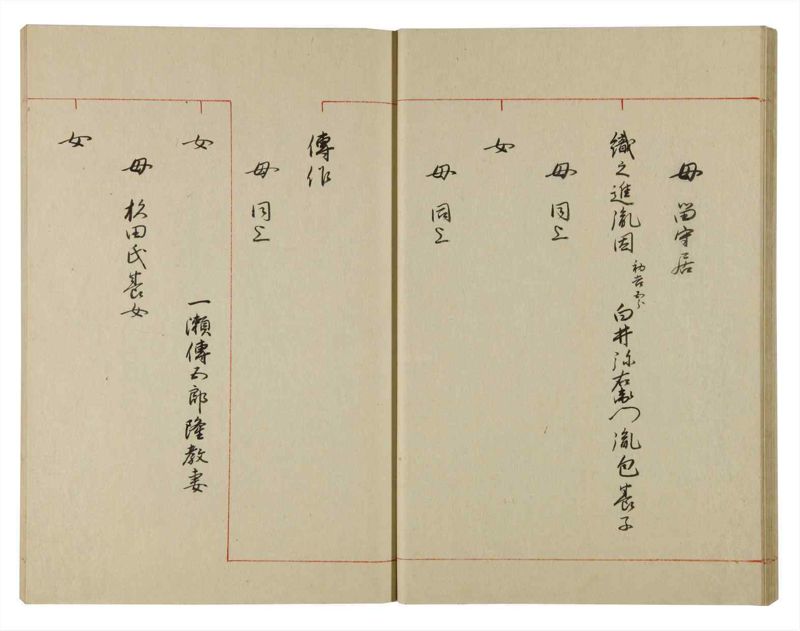 母 留守居
織之進胤固 初吉郎 白井弥右衛門胤包養子
母 同上
女
母 同上
傳作
母 同上
女
一瀬傳五郎隆教妻
母 杉田氏養女
女